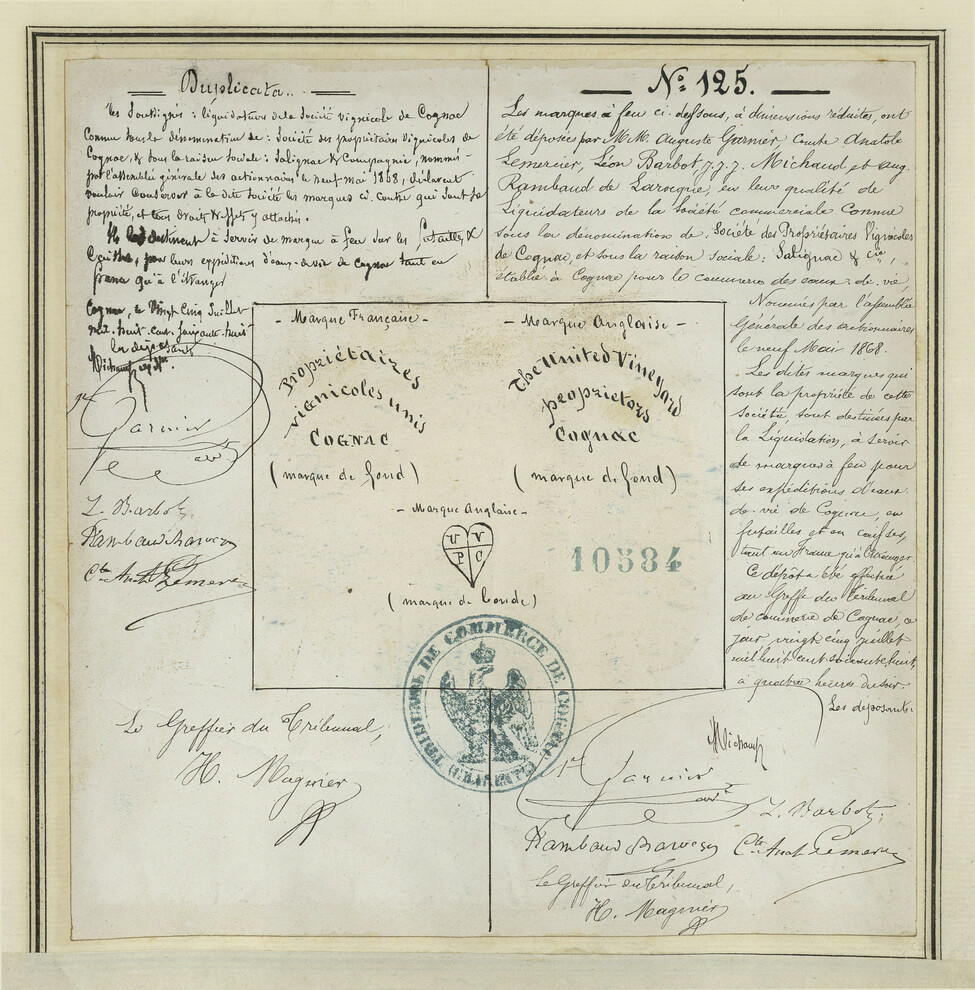 Duplicata..
Les Soussignés : liquidateurs de la Société vignicole de Cognac
Connue sous la dénomination de : Société des propriétaires Vignicoles de
Cognac, & sous la raison sociale : Salignac & Compagnie, nommés
par l'assemblée générale des actionnaires le neuf mai 1868, déclarent
vouloir conserver à la dite société les marques ci. contre qui sont sa
propriété, et tous droits & effets y attachés.
Ils les destinent à servir de marque à feu sur les futailles &
Caisses, pour leurs expéditions d'eaux-de-vie de Cognac tant en
france qu'à l'étranger
Cognac, le Vingt Cinq Juillet
mil. huit. cent. soixante. huit
les déposants
Michaud
Garnier
L. Barbot
Rambaud Larocque
Cte Anat Lemercier
N° 125.
Les marques à feu ci-dessous, à dimensions réduites, ont
été déposées par M.M. Auguste Garnier, Comte Anatole
Lemercier, Léon Barbot, J.J.J. Michaud et Aug.
Rambaud de Larocque, en leur qualité de
Liquidateurs de la Société commerciale Connue
sous la dénomination de : Société des Propriétaires Vignicoles
de Cognac, et sous la raison Sociale : Salignac & Cie,
établie à Cognac pour le commerce des eaux-de-vie.
Nommés par l'assemblée
Générale des actionnaires
le neuf Mai 1868.
Les dites marques qui
sont la propriété de cette
Société, sont destinées par
la Liquidation, à servir
de marques à feu pour
ses expéditions d'eaux-
de-vie de Cognac, en
futailles et en caisses,
tant en France qu'à l'étranger.
Ce dépôt a été effectué
au Greffe du Tribunal
de commerce de Cognac, ce
jour vingt cinq juillet
mil huit cent soixante huit,
à quatre heures du soir.
Les déposants
- Marque Française -
Propriétaires
vignicoles unis
COGNAC
(marque de fond)
- Marque Anglaise -
The United Vineyard
proprietors
Cognac
(marque de fond)
- Marque Anglaise -
U V
P C
(marque de bonde)
10584
TRIBUNAL DE COMMERCE DE COGNAC
(CHARENTE)
Le Greffier du Tribunal,
H. Magnier
Michaud
Garnier
L. Barbot
Rambaud Larocque
Cte Anat Lemercier
Le Greffier du Tribunal,
H. Magnier